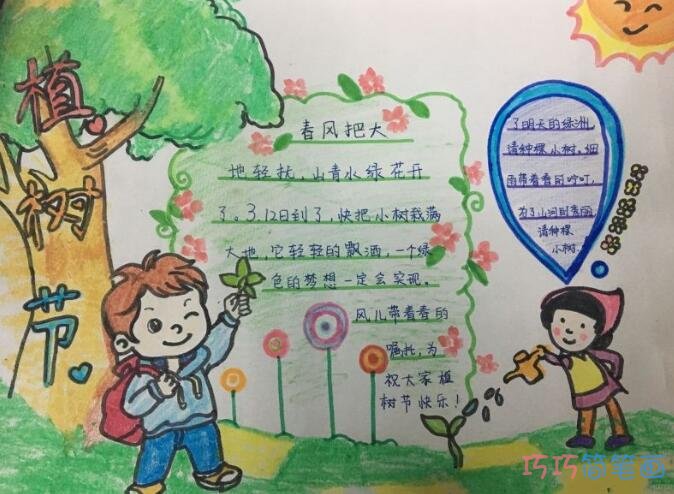 植树节
春风把大
地轻抚，山青水绿花开
了。3.12日到了，快把小树栽满
大地，它轻轻的飘洒，一个绿
色的梦想一定会实现。
风儿带着春的
嘱托，为
祝大家植
树节快乐！
了明天的绿洲，
请种棵小树。细
雨带着春的吟叮，
为了山河
请种棵
小树.
巧巧简笔画